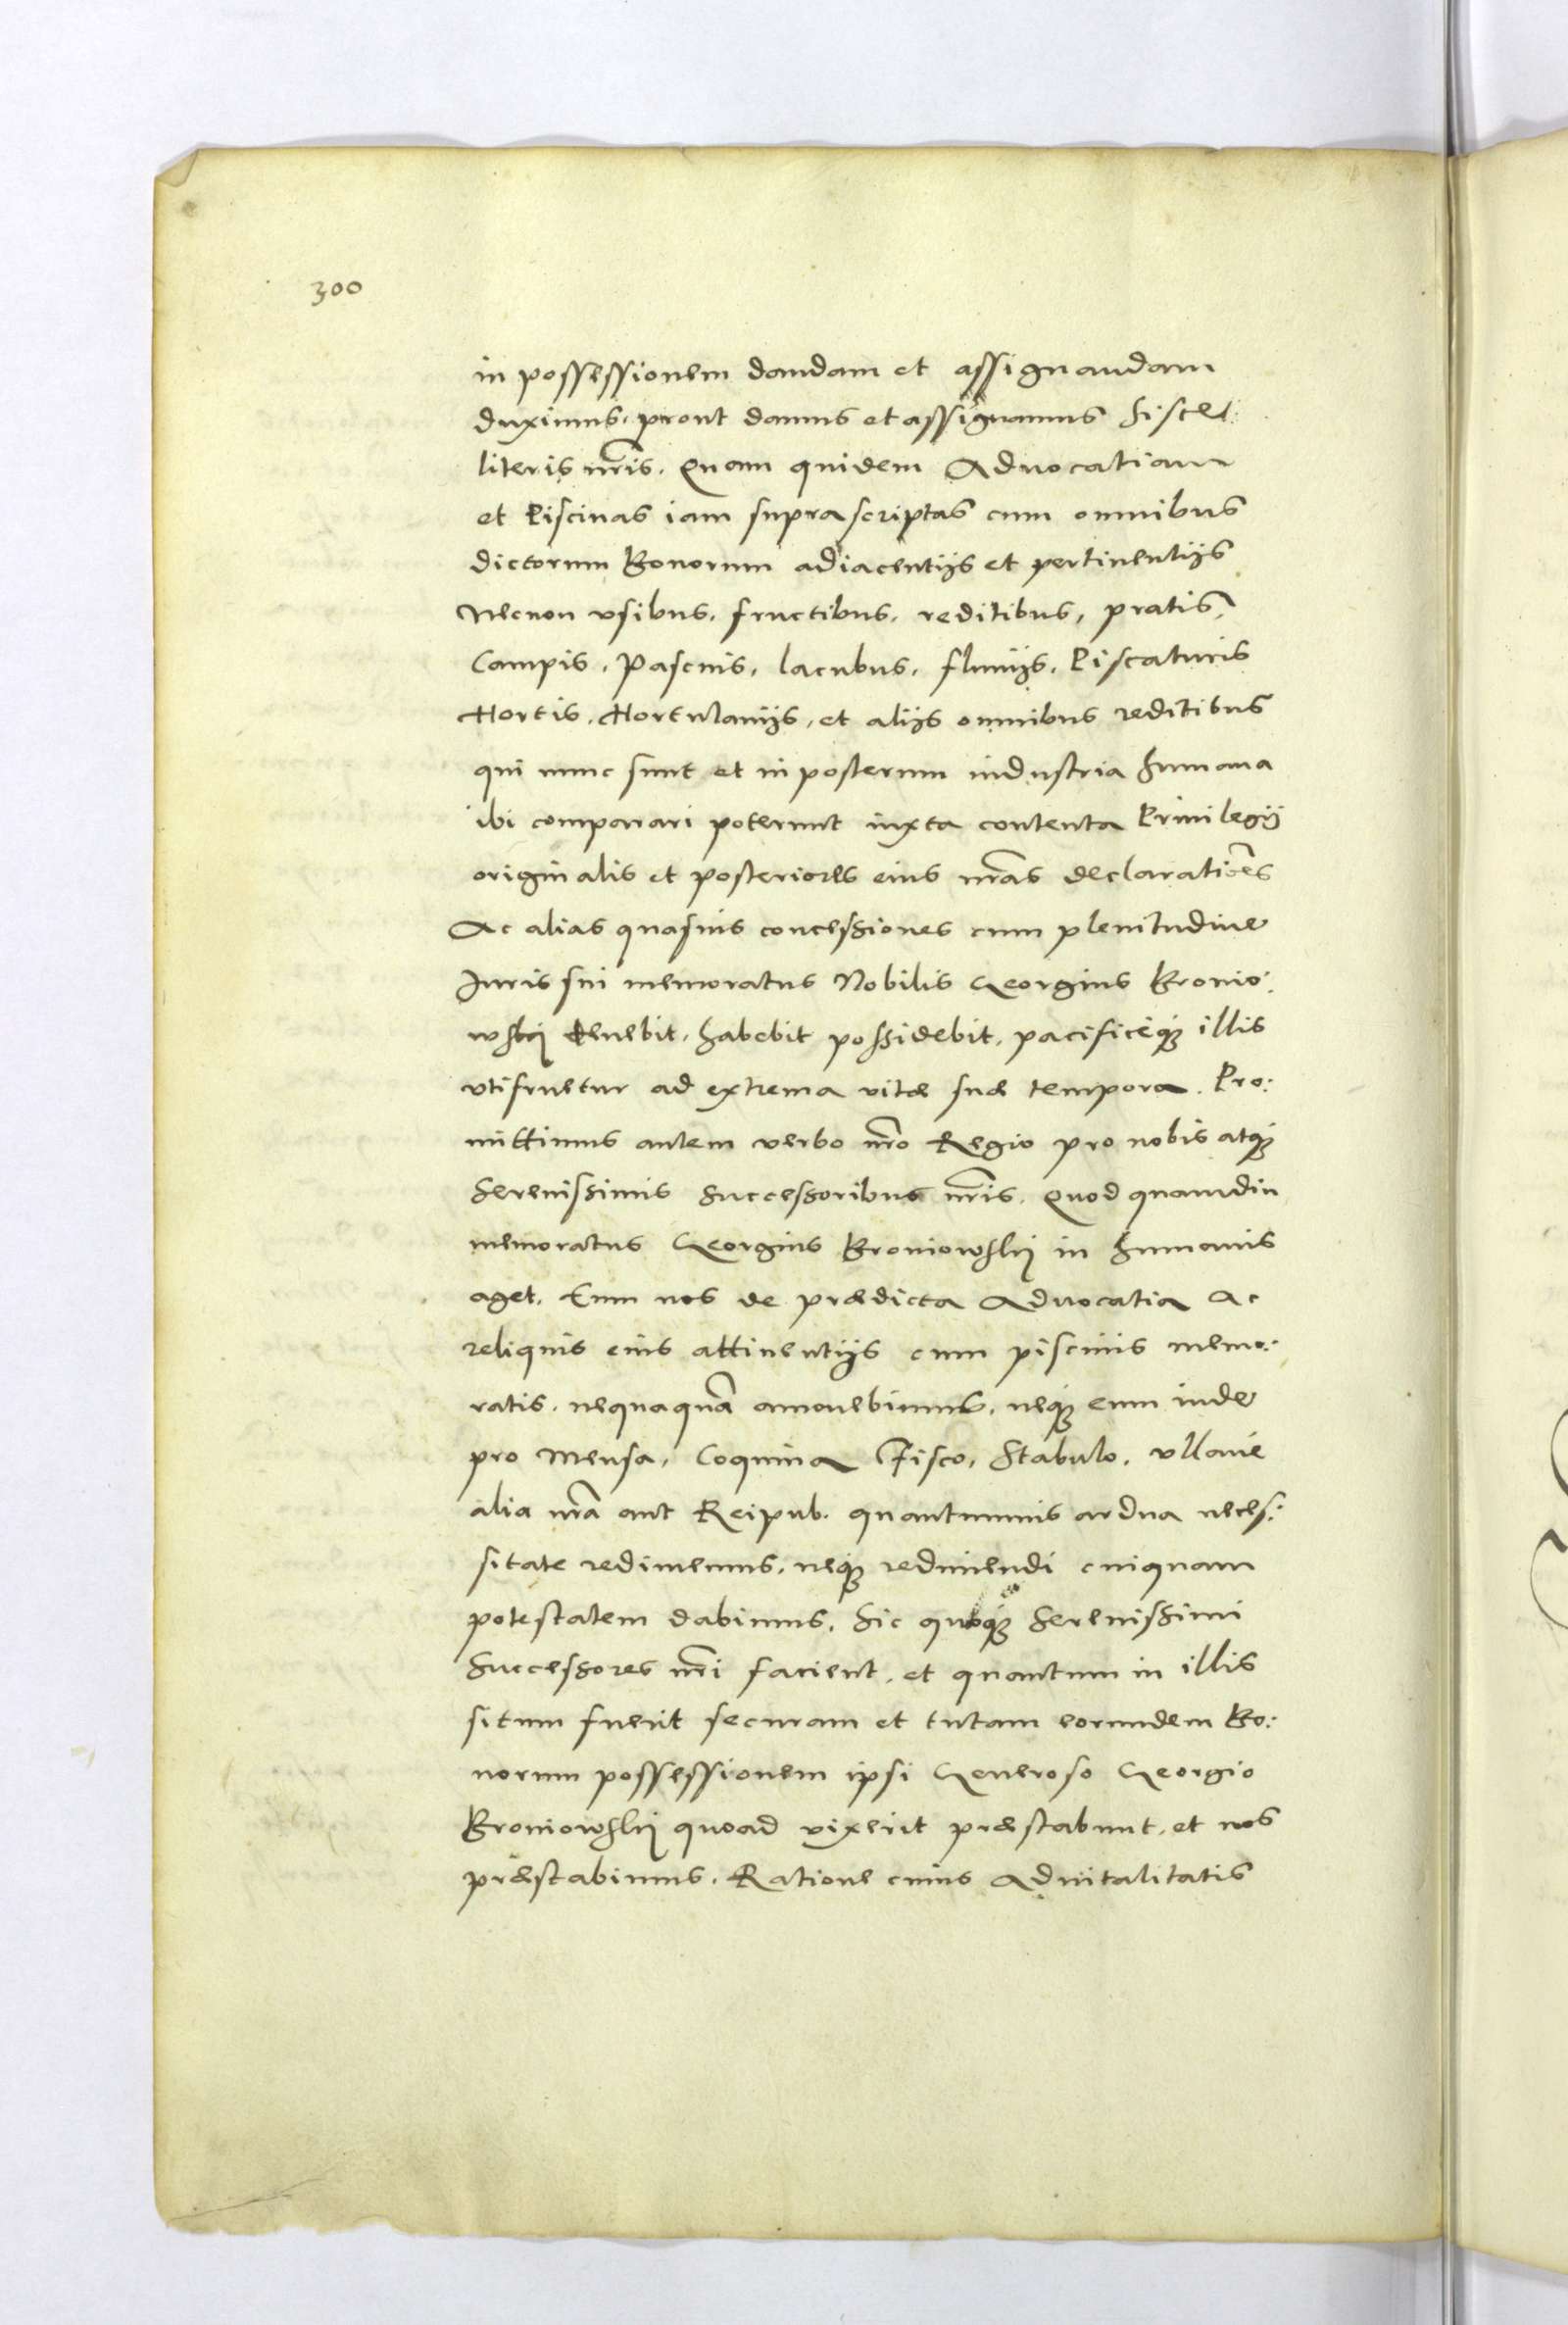 300
in possessionem dandam et assignandam
duximus, prout damus et assignamus hisce
literis nr̃is. Quam quidem Advocatiam
et Piscinas iam suprascriptas cum omnibus
dictorum Bonorum adiacentijs et pertinentijs
Necnon vsibus, fructibus, reditibus, pratis,
Campis, Pascuis, lacubus, fluuijs, Piscaturis
Hortis, Hortulanijs, et alijs omnibus reditibus
qui nunc sunt et in posterum industria humana
ibi comparari poterunt iuxta contenta Priuilegij
originalis et posteriores eius nr̃as declaratiões
Ac alias quasuis concessiones cum plenitudine
Iuris sui memoratus Nobilis Georgius Bronio:
wskij tenebit, habebit possidebit, pacificeq́ illis
vtifruetur ad extrema vitæ suæ tempora. Pro:
mittimus autem verbo nr̃o Regio pro nobis atq́
Serenissimis Successoribus nr̃is. Quod quamdiu
memoratus Georgius Broniowskij in humanis
aget. Eum nos de prædicta Advocatia Ac
reliquis eius attinentijs cum piscinis memo:
ratis, nequaquã amouebimus, neq́ eum inde
pro Mensa, Coquina Fisco, Stabulo, vllaue
alia nr̃a aut Reipub. quantumuis ardua neces:
sitate redimemus, neq́ redimendi cuiquam
potestatem dabimus, Sic quoq́ Serenissimi
Successores nr̃i facient, et quantum in illis
situm fuerit securam et tutam eorundem Bo:
norum possessionem ipsi Generoso Georgio
Broniowskij quoad vixerit præstabunt, et nos
præstabimus. Ratione cuius Aduitalitatis